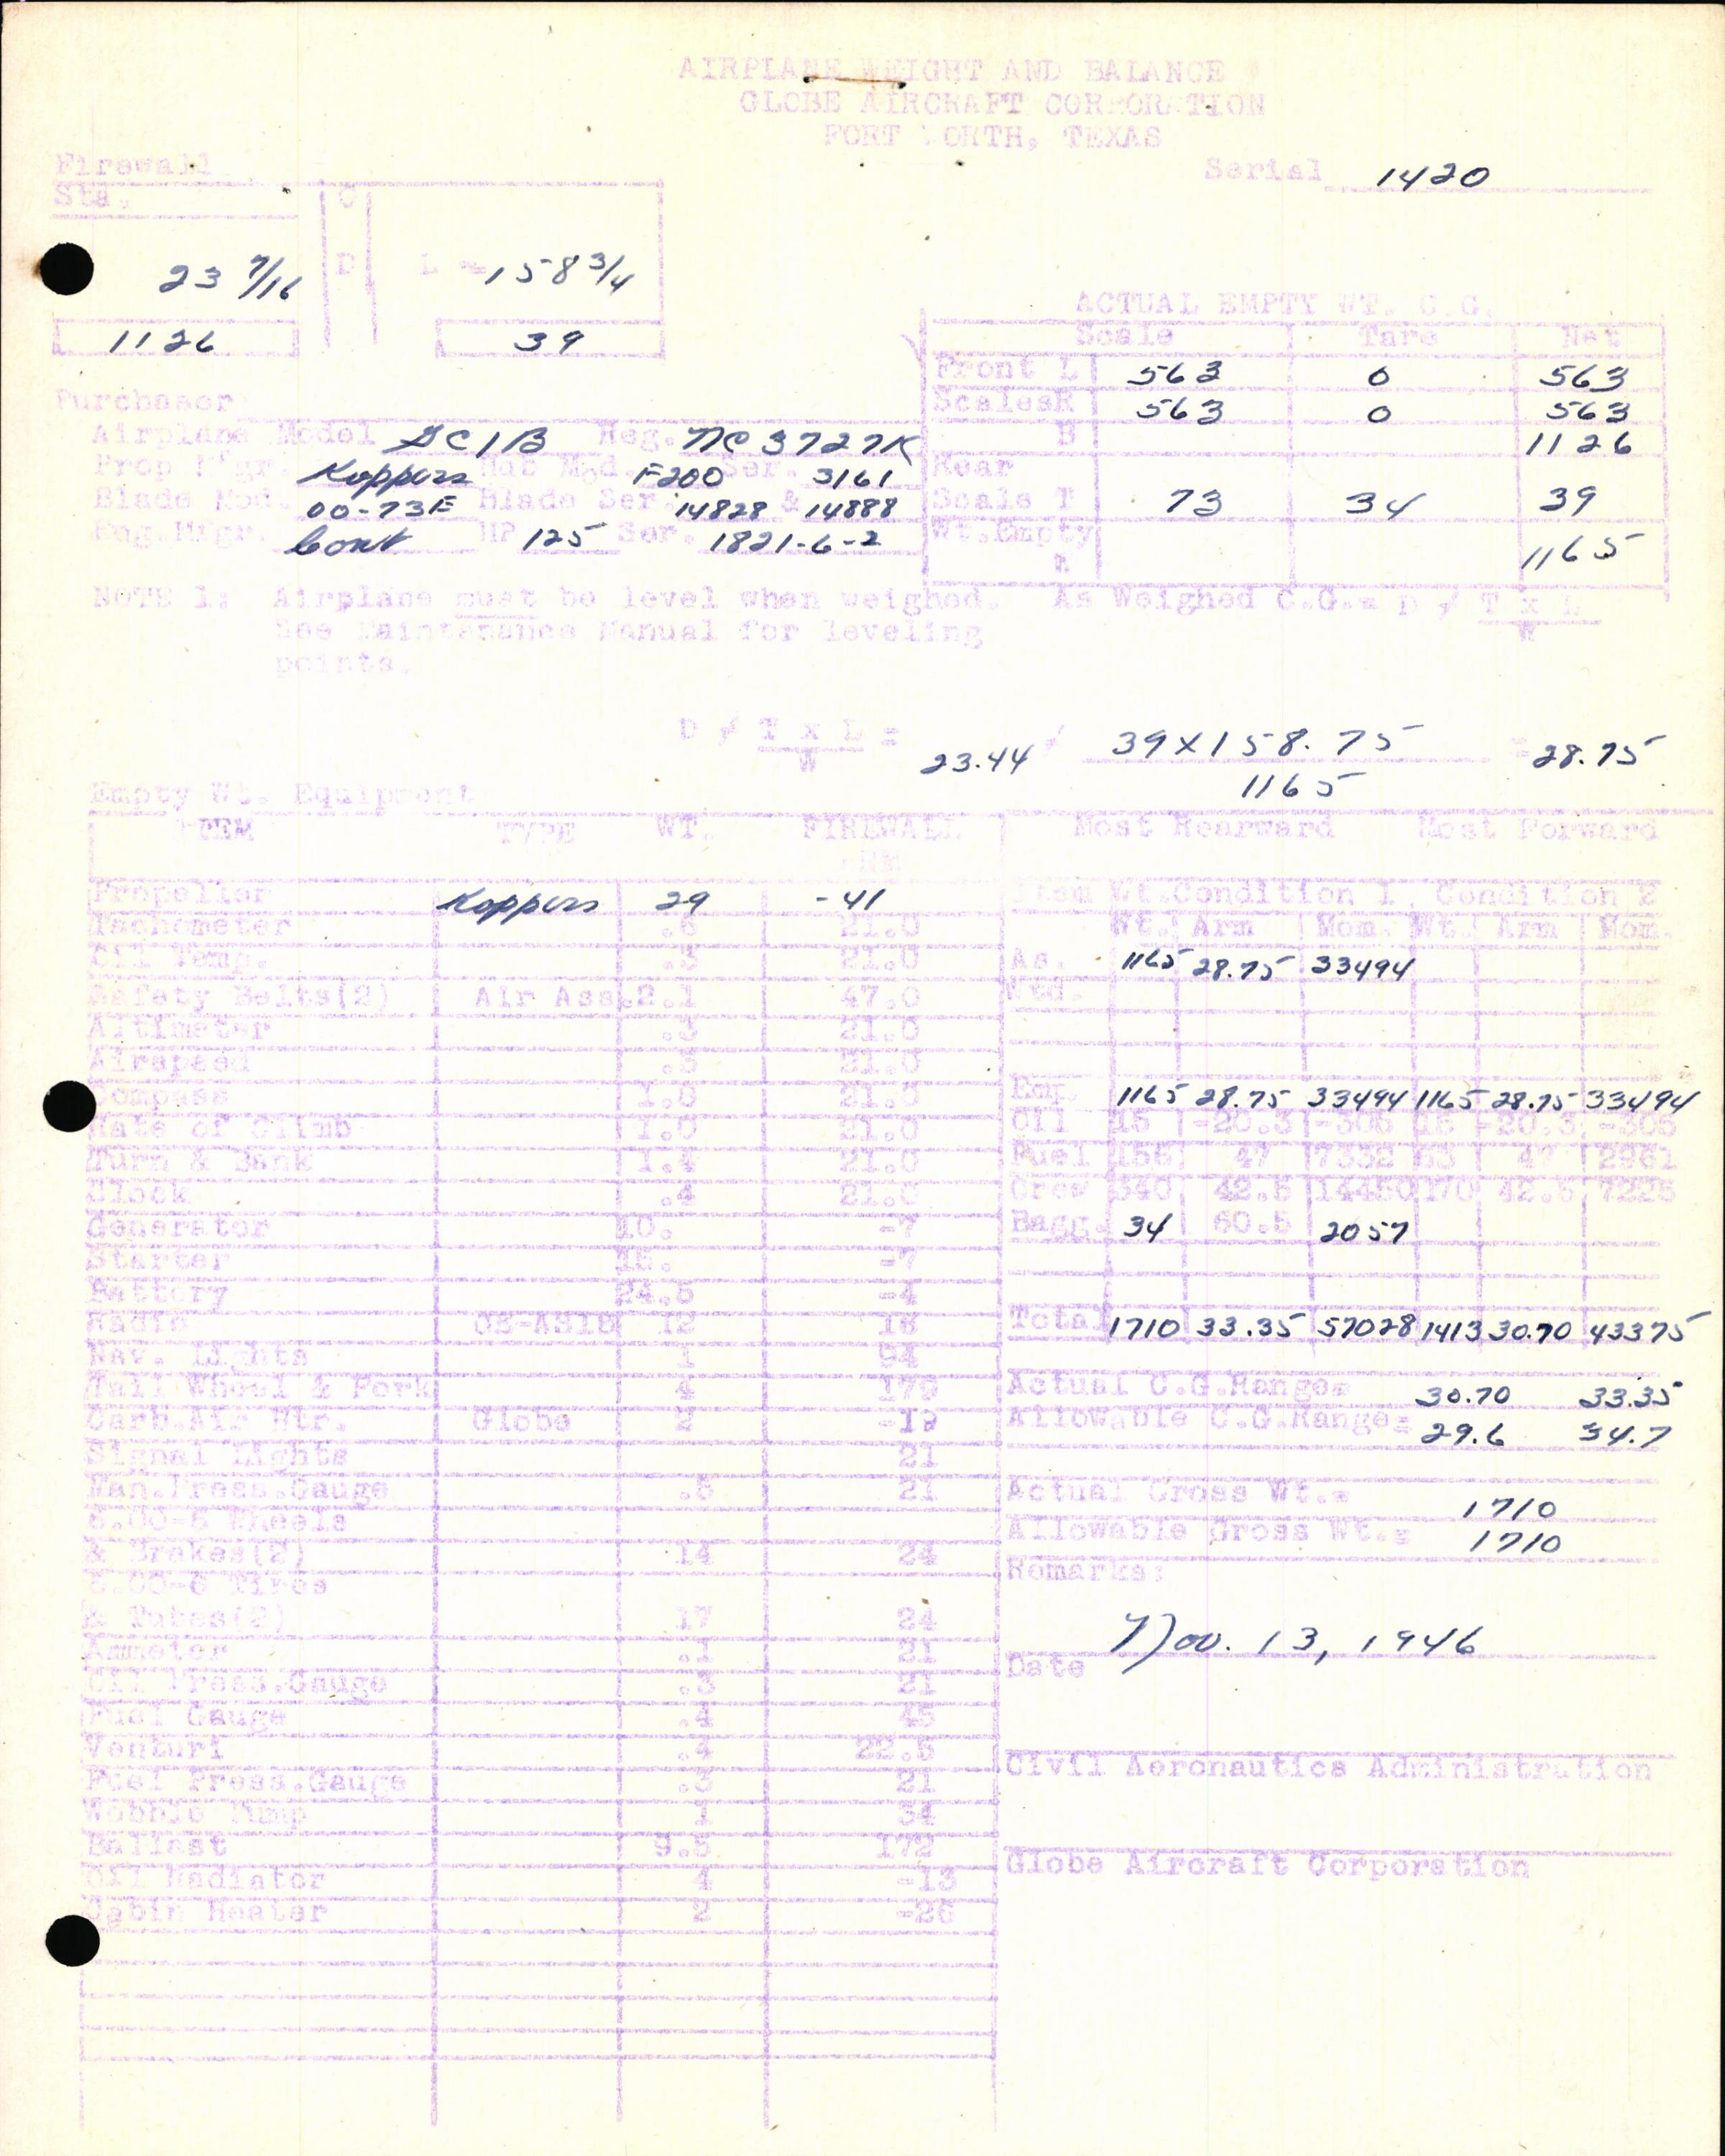 AIRPLANE WEIGHT AND BALANCE
GLOBE AIRCRAFT CORPORATION
FORT WORTH, TEXAS
Serial 1420
Firewall
Sta.
C
D
23 7/16
L = 158 3/4
1126
39
ACTUAL EMPTY WT. C.G.
Scale Tare Net
Front L 563 0 563
Scales R 563 0 563
B 1126
Rear
Scale T 73 34 39
Wt. Empty 1165
Purchaser
Airplane Model GC1B Reg. NC 3727K
Prop M'fgr. Koppers Hub Mod. F200 Ser. 3161
Blade Mod. 00-73E Blade Ser. 14828 & 14888
Eng.Mfgr. Cont HP 125 Ser. 1821-6-2
NOTE 1: Airplane must be level when weighed. As Weighed C.G.= D ≠ T x L
W
See Maintenance Manual for leveling
points.
D ≠ T x L = 23.44 ≠ 39 X 158.75 = 28.75
W 1165
Empty Wt. Equipment
ITEM TYPE WT. FIREWALL ARM
Propeller Koppers 29 -41
Tachometer .6 21.0
Oil Temp. .3 21.0
Safety Belts(2) Air Ass. 2.1 47.0
Altimeter 21.0
Airspeed 21.0
Compass 1.0 21.0
Rate of Climb 1.0 21.0
Turn & Bank 1.4 21.0
Clock .4 21.0
Generator 10. -7
Starter -7
Battery 24.5 -4
Radio 12
Nav. Lights 1 94
Tail Wheel & Fork 4
Carb.Air Htr. Globe 2 -19
Signal Lights 21
Man.Press.Gauge .5 21
6.00-6 Wheels
& Brakes(2) 14 24
6.00-6 Tires
& Tubes(2) 17 24
Ammeter .1 21
Oil Press.Gauge .3 21
Fuel Gauge .4 45
Venturi .4 22.5
Fuel Press.Gauge .3 21
Wobble Pump 1 34
Ballast 9.5 172
Oil Radiator 4 -13
Cabin Heater 2 -26
Most Rearward Most Forward
Item Wt. Condition 1. Condition 2
Wt. Arm Mom. Wt. Arm Mom.
As. 1165 28.75 33494
Wtd.
Emp. 1165 28.75 33494 1165 28.75 33494
Oil 15 -20.3 -305 15 -20.3 -305
Fuel 156 47 7332 63 47 2961
Crew 340 42.5 14450 170 42.5 7225
Bagg. 34 60.5 2057
Total 1710 33.35 57028 1413 30.70 43375
Actual C.G.Range= 30.70 33.35
Allowable C.G.Range= 29.6 34.7
Actual Gross Wt.= 1710
Allowable Gross Wt.= 1710
Remarks:
Nov. 13, 1946
Date
Civil Aeronautics Administration
Globe Aircraft Corporation